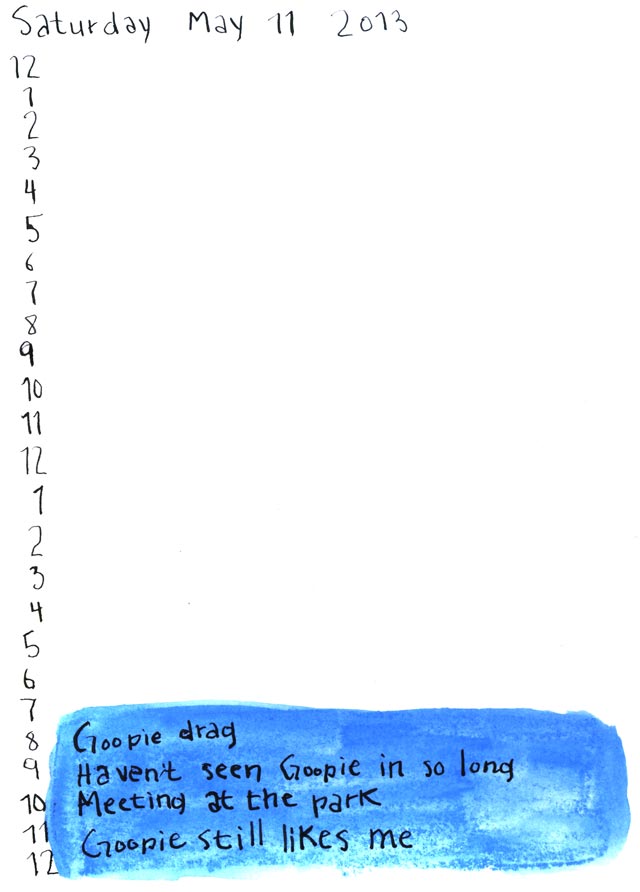 Saturday May 11 2013
12
1
2
3
4
5
6
7
8
9
10
11
12
1
2
3
4
5
6
7
8 Goopie drag
9 Haven't seen Goopie in so long
10 Meeting at the park
11 Goopie still likes me
12